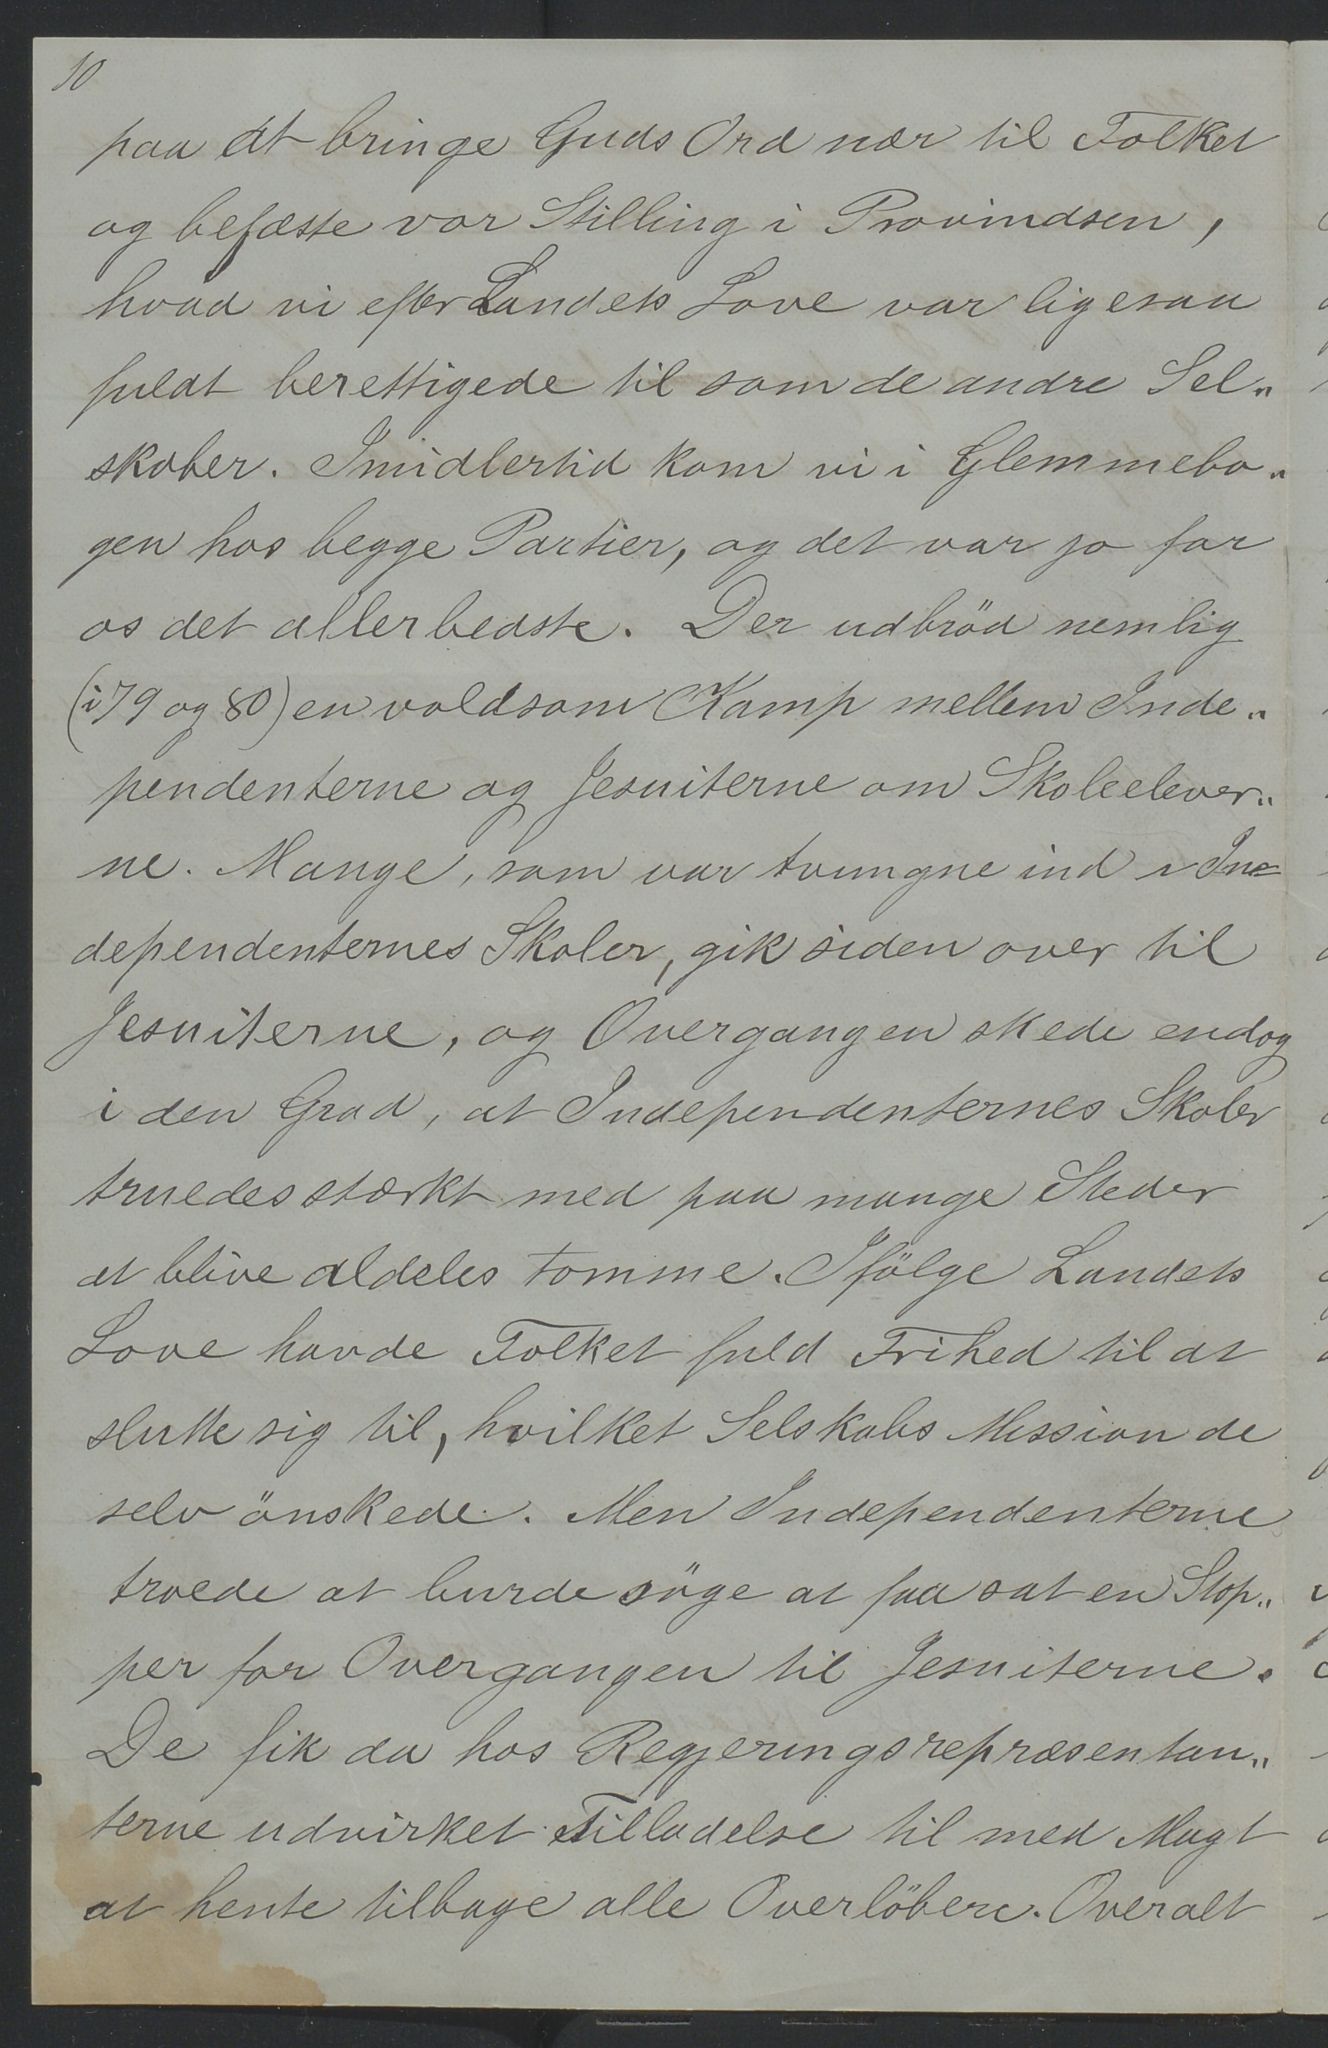 10
paa at bringe Guds Ord nær til Folket
og befæste vor Stilling i Provindsen,
hvad vi efter Landets Love var ligesaa
fuldt berettigede til som de andre Sel„
skaber. Imidlertid kom vi i Glemmebo„
gen hos begge Partier, og det var jo for
os det allerbedste. Der udbröd nemlig
(i 79 og 80) en voldsom Kamp mellem Inde„
pendenterne og Jesuiterne om Skoleelever„
ne. Mange, som var tvungne ind i In=
dependenternes Skoler, gik siden over til
Jesuiterne, og Overgangen skede endog
i den Grad, at Independenternes Skoler
truedes stærkt med paa mange Steder
at blive aldeles tomme. Ifölge Landets
Love havde Folket fuld Frihed til at
slutte sig til, hvilket Selskabs Mission de
selv önskede. Men Independenterne
troede at burde söge at faa sat en Stop„
per for Overgangen til Jesuiterne.
De fik da hos Regjeringsrepræsentan„
terne udvirket Tilladelse til med Magt
at hente tilbage alle Overlöbere. Overalt